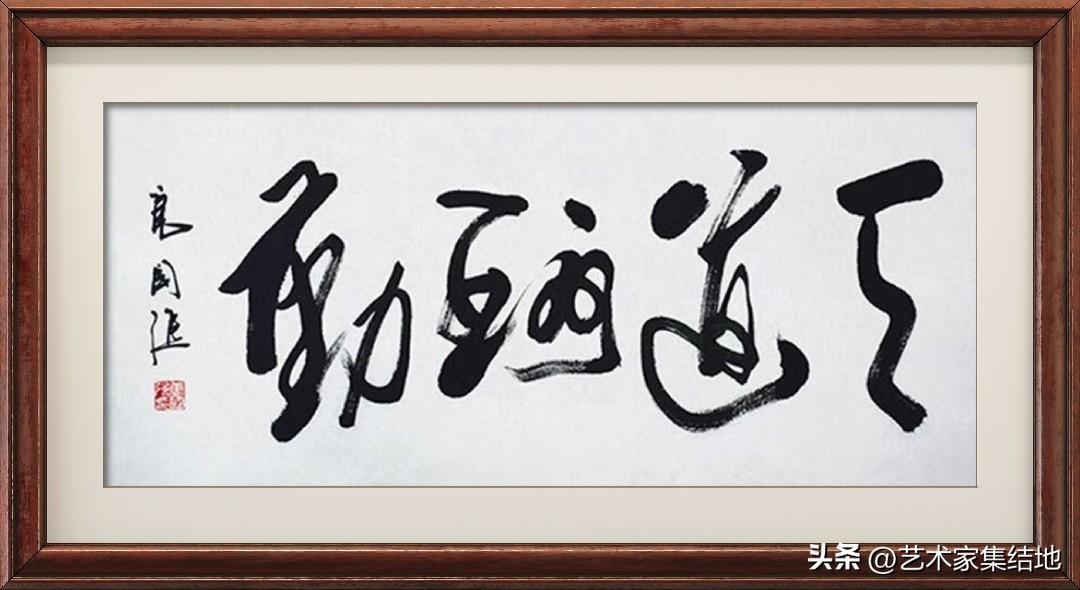 天道酬勤
头条 @艺术家集结地